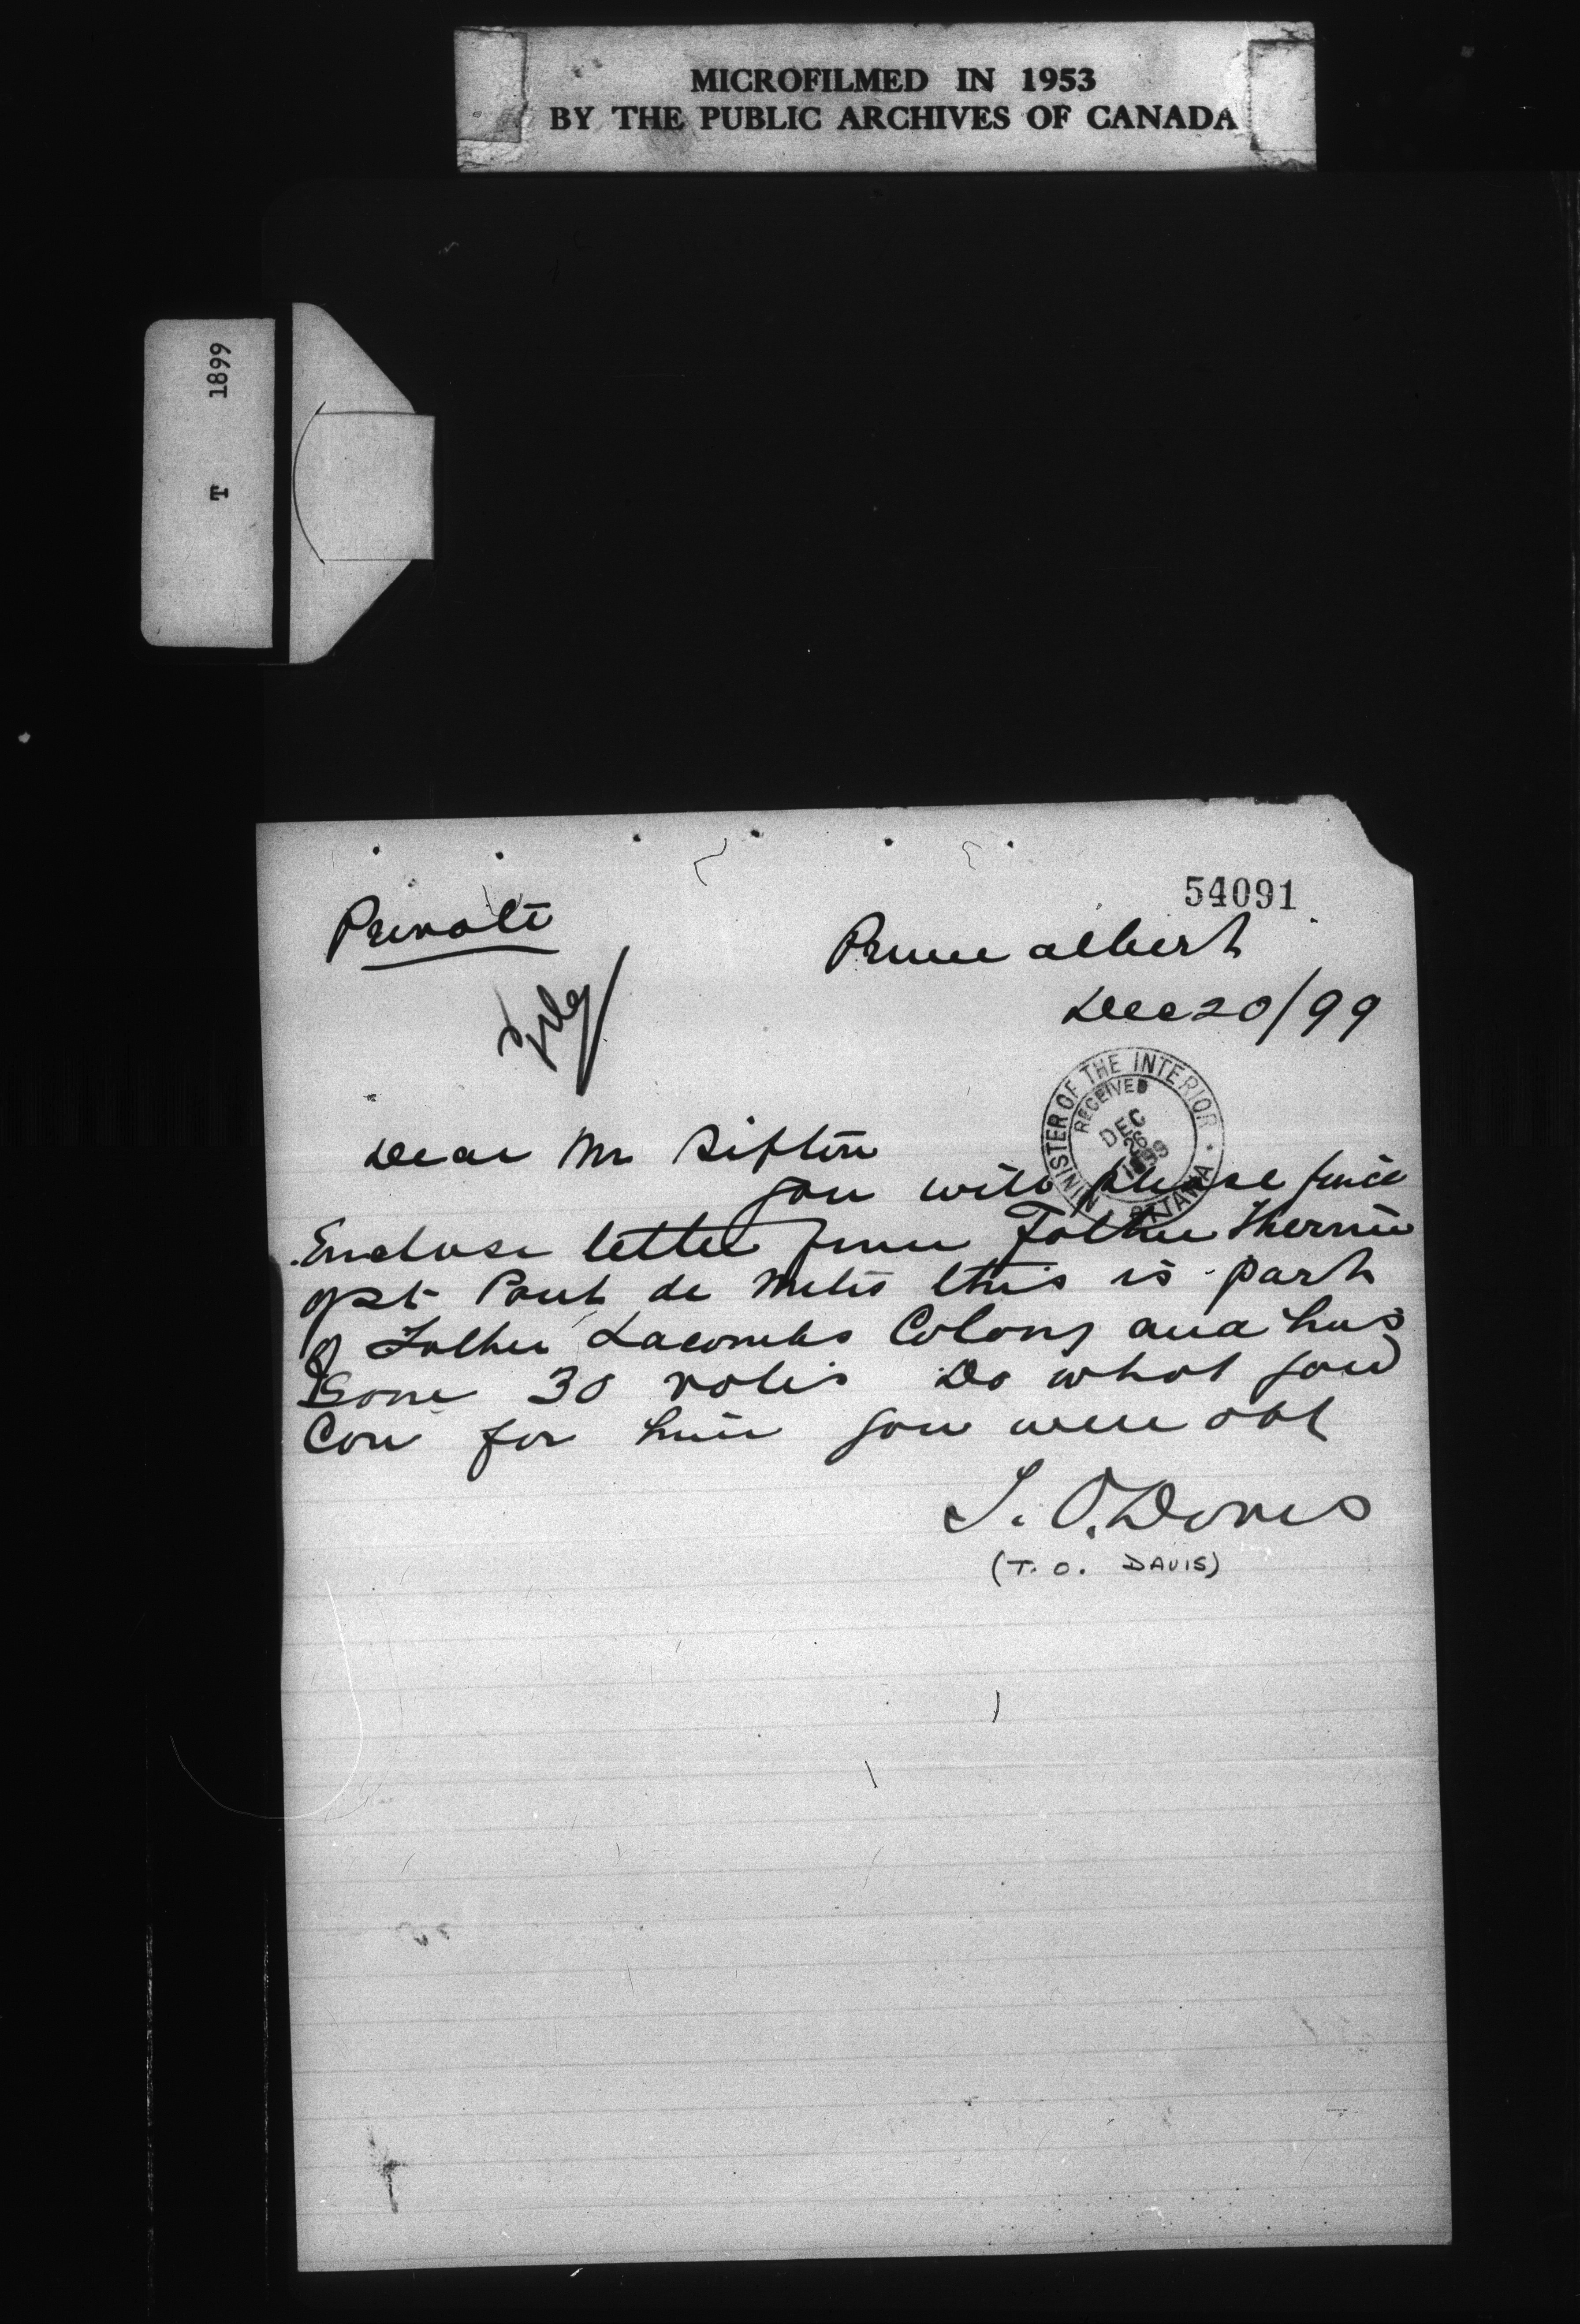 MICROFILMED IN 1953
BY THE PUBLIC ARCHIVES OF CANADA
T 1899
54091
Private
Prince Albert
Dec 20/99
MINISTER OF THE INTERIOR
RECEIVED
DEC
26
1899
OTTAWA
Dear Mr Sifton
you will please find
Enclose letter from Father Therrien
of St Paul de Metis this is part
of Father Lacombs Colony and has
Some 30 votes Do what you
Can for him
T. O. Davis
(T. O. DAVIS)